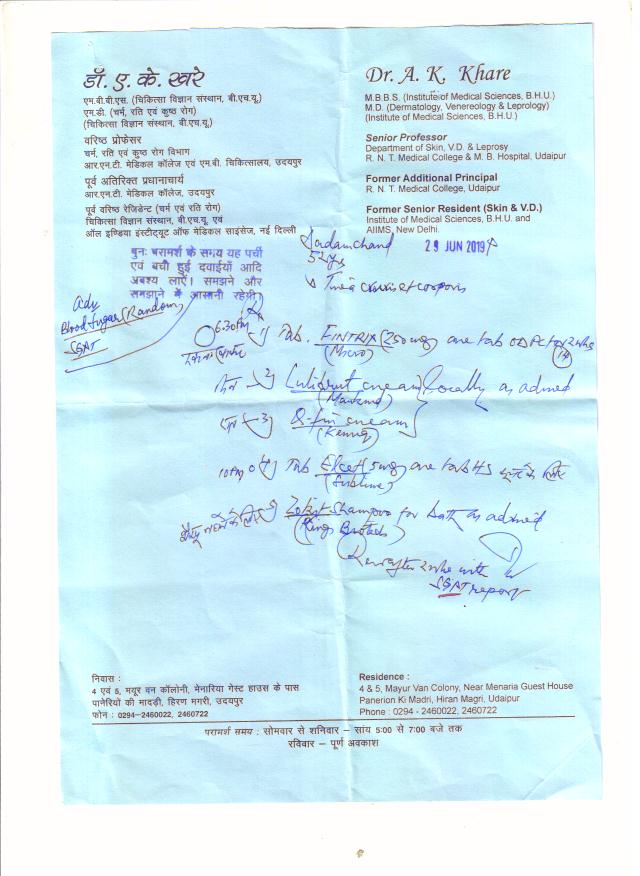 डॉ. ए. के. खरे
एम.बी.बी.एस. (चिकित्सा विज्ञान संस्थान, बी.एच.यू.)
एम.डी. (चर्म, रति एवं कुष्ठ रोग)
(चिकित्सा विज्ञान संस्थान, बी.एच.यू.)
वरिष्ठ प्रोफेसर
चर्म, रति एवं कुष्ठ रोग विभाग
आर.एन.टी. मेडिकल कॉलेज एवं एम.बी. चिकित्सालय, उदयपुर
पूर्व अतिरिक्त प्रधानाचार्य
आर.एन.टी. मेडिकल कॉलेज, उदयपुर
पूर्व वरिष्ठ रेजिडेंट (चर्म एवं रति रोग)
चिकित्सा विज्ञान संस्थान, बी.एच.यू. एवं
ऑल इण्डिया इंस्टीट्यूट ऑफ मेडिकल साइंसेज, नई दिल्ली
Dr. A. K. Khare
M.B.B.S. (Institute of Medical Sciences, B.H.U.)
M.D. (Dermatology, Venereology & Leprology)
(Institute of Medical Sciences, B.H.U.)
Senior Professor
Department of Skin, V.D. & Leprosy
R. N. T. Medical College & M. B. Hospital, Udaipur
Former Additional Principal
R. N. T. Medical College, Udaipur
Former Senior Resident (Skin & V.D.)
Institute of Medical Sciences, B.H.U. and
AIIMS, New Delhi.
29 JUN 2019
पुनः परामर्श के समय यह पर्ची
एवं बची हुई दवाईयाँ आदि
अवश्य लाएँ। समझने और
समझाने में आसानी रहेगी।
Adv
Blood Sugar (Random)
SGPT
Tinea cruris et corporis
6.30PM 1) Tab. FINTRIX (250mg) one tab OD
(Micro)
14
2) cream locally as advised
(Mankind)
3) cream
10PM 4) Tab 5mg one tab HS
5) Shampoo for bath as advised
(King Brothers)
Rev after 2wks with
SGPT report
निवास :
4 एवं 5, मयूर वन कॉलोनी, मेनारिया गेस्ट हाउस के पास
पानेरियों की मादड़ी, हिरण मगरी, उदयपुर
फोन : 0294-2460022, 2460722
Residence :
4 & 5, Mayur Van Colony, Near Menaria Guest House
Panerion Ki Madri, Hiran Magri, Udaipur
Phone : 0294 - 2460022, 2460722
परामर्श समय : सोमवार से शनिवार – सांय 5:00 से 7:00 बजे तक
रविवार – पूर्ण अवकाश